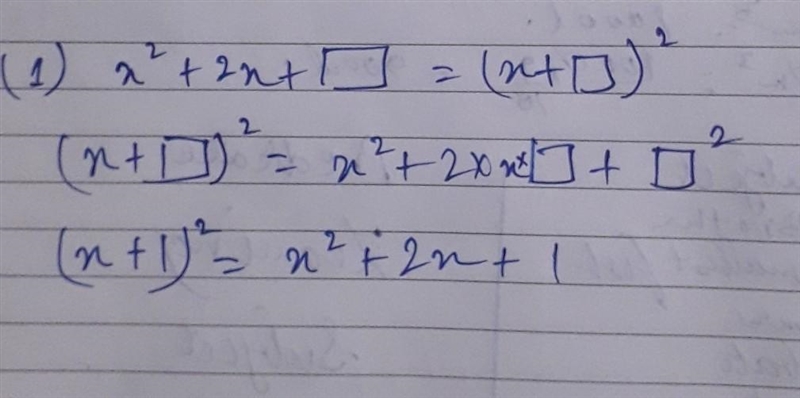 (1) x² + 2x + □ = (x + □)²
(x + □)² = x² + 2 × x × □ + □²
(x + 1)² = x² + 2x + 1